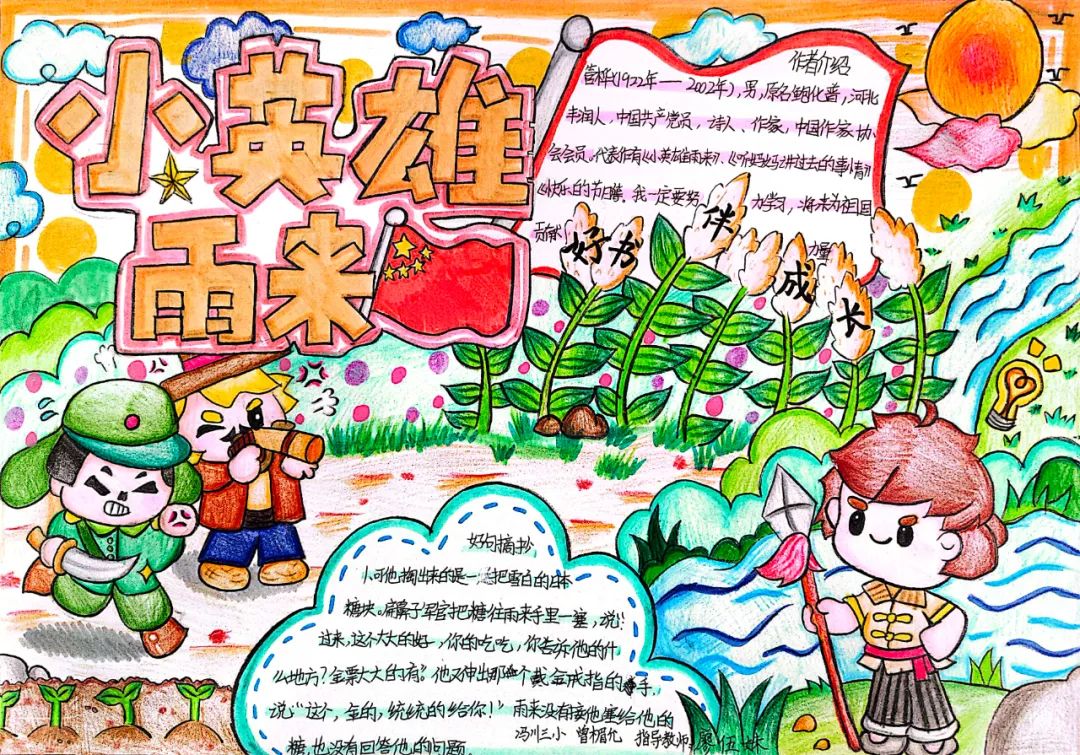 小英雄
雨来
作者介绍
管桦(1922年——2002年),男,原名鲍化普,河北
丰润人,中国共产党员,诗人、作家,中国作家协
会会员。代表作有《小英雄雨来》、《听妈妈讲过去的事情》
《快乐的节日》等。我一定要努力学习,将来为祖国
贡献力量
好书伴成长
好句摘抄
小可他掏出来的是一把雪白的日本
糖块。扁鼻子军官把糖往雨来手里一塞,说:
过来,这个大大的好,你的吃吃,你告诉他的什
么地方?金票大大的有。”他又伸出那个戴金戒指的手,
说:“这个,金的,统统的给你!”雨来没有接他塞给他的
糖,也没有回答他的问题
冯川三小 曾楣允 指导教师:廖伍妹